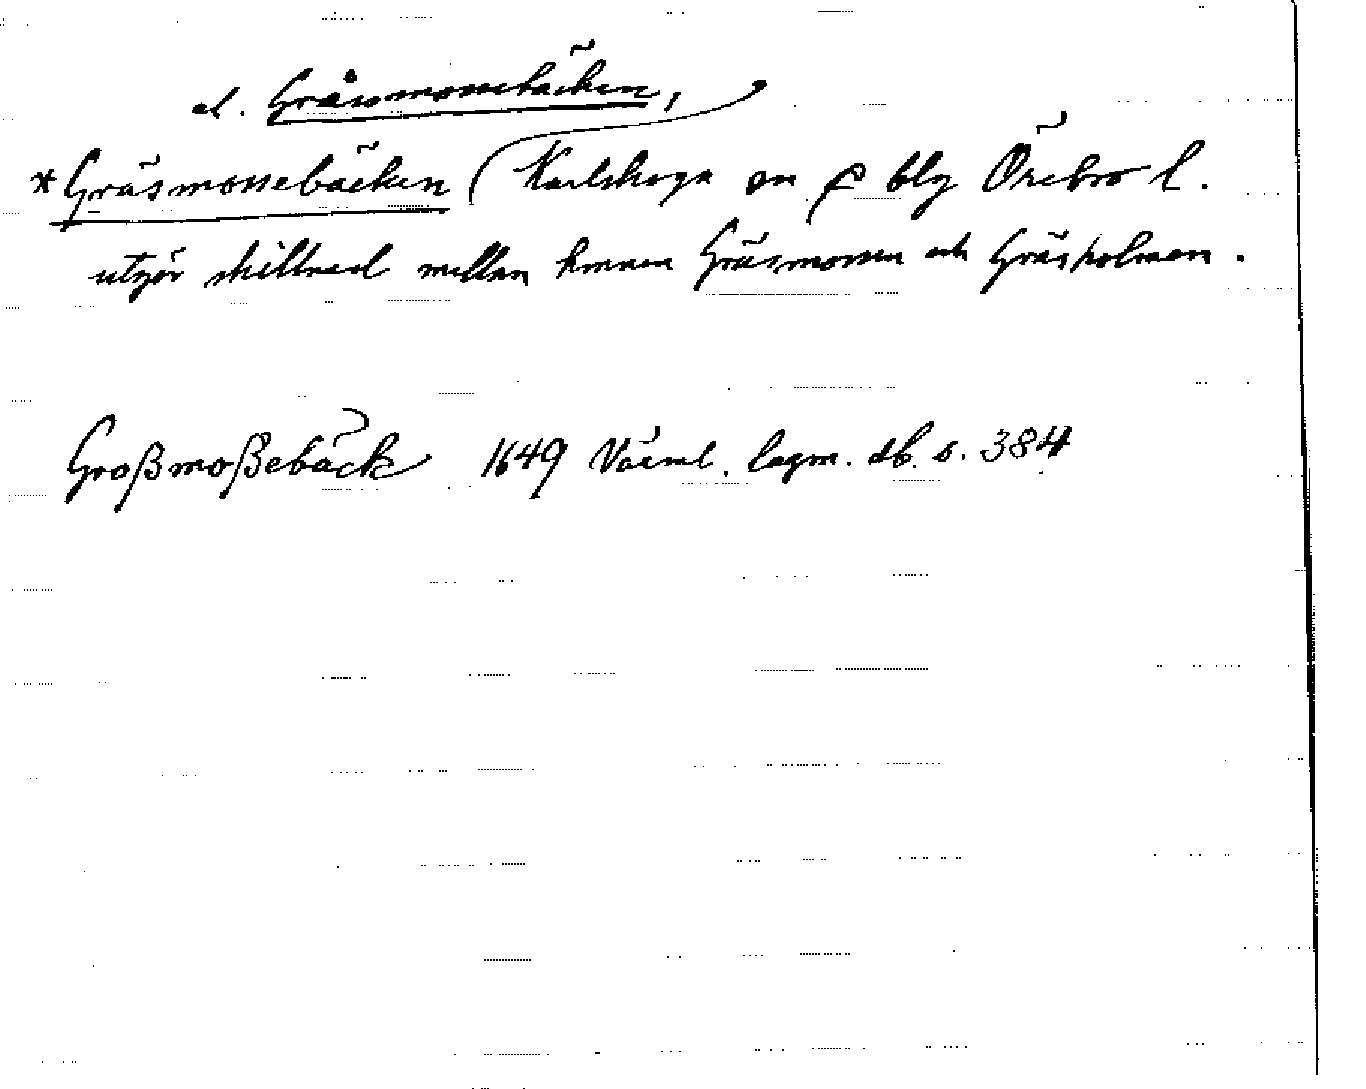 el. Gråsmossebäcken,
*Gräsmossebäcken (Karlskoga sn blg Örebro l.
utgör skillnad mellan hmnen Gräsmossen och Gräsholmen.
Großmoßebäck 1649 Värml. lagm. db. s. 384